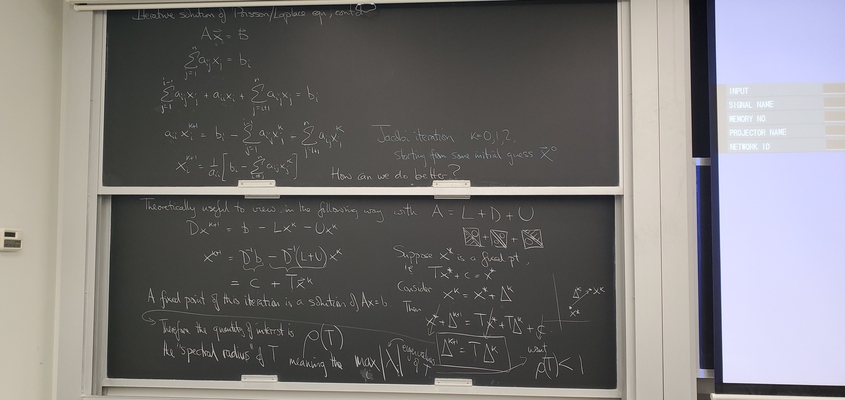 Iterative solution of Poisson/Laplace eqn, cont'd
A x⃗ = b⃗
∑_{j=1}^{n} a_{ij} x_j = b_i
∑_{j=1}^{i-1} a_{ij} x_j + a_{ii} x_i + ∑_{j=i+1}^{n} a_{ij} x_j = b_i
a_{ii} x_i^{k+1} = b_i - ∑_{j=1}^{i-1} a_{ij} x_j^k - ∑_{j=i+1}^{n} a_{ij} x_j^k
Jacobi iteration k=0,1,2,
starting from some initial guess x⃗^0
x_i^{k+1} = 1/a_{ii} [b_i - ∑ a_{ij} x_j^k]
How can we do better?
Theoretically useful to view in the following way with A = L + D + U
Dx^{k+1} = b - Lx^k - Ux^k
x^{k+1} = D^{-1}b - D^{-1}(L+U) x^k
= c + Tx⃗^k
A fixed point of this iteration is a solution of Ax=b
Therefore the quantity of interest is ρ(T)
the "spectral radius" of T meaning the max |λ| eigenvalues of T
Suppose x* is a fixed pt.
Tx* + c = x*
Consider x^k = x* + Δ^k
Then
x* + Δ^{k+1} = Tx* + TΔ^k + c
Δ^{k+1} = TΔ^k
want
ρ(T) < 1
Δ^k x^k
x*
INPUT
SIGNAL NAME
MEMORY NO
PROJECTOR NAME
NETWORK ID